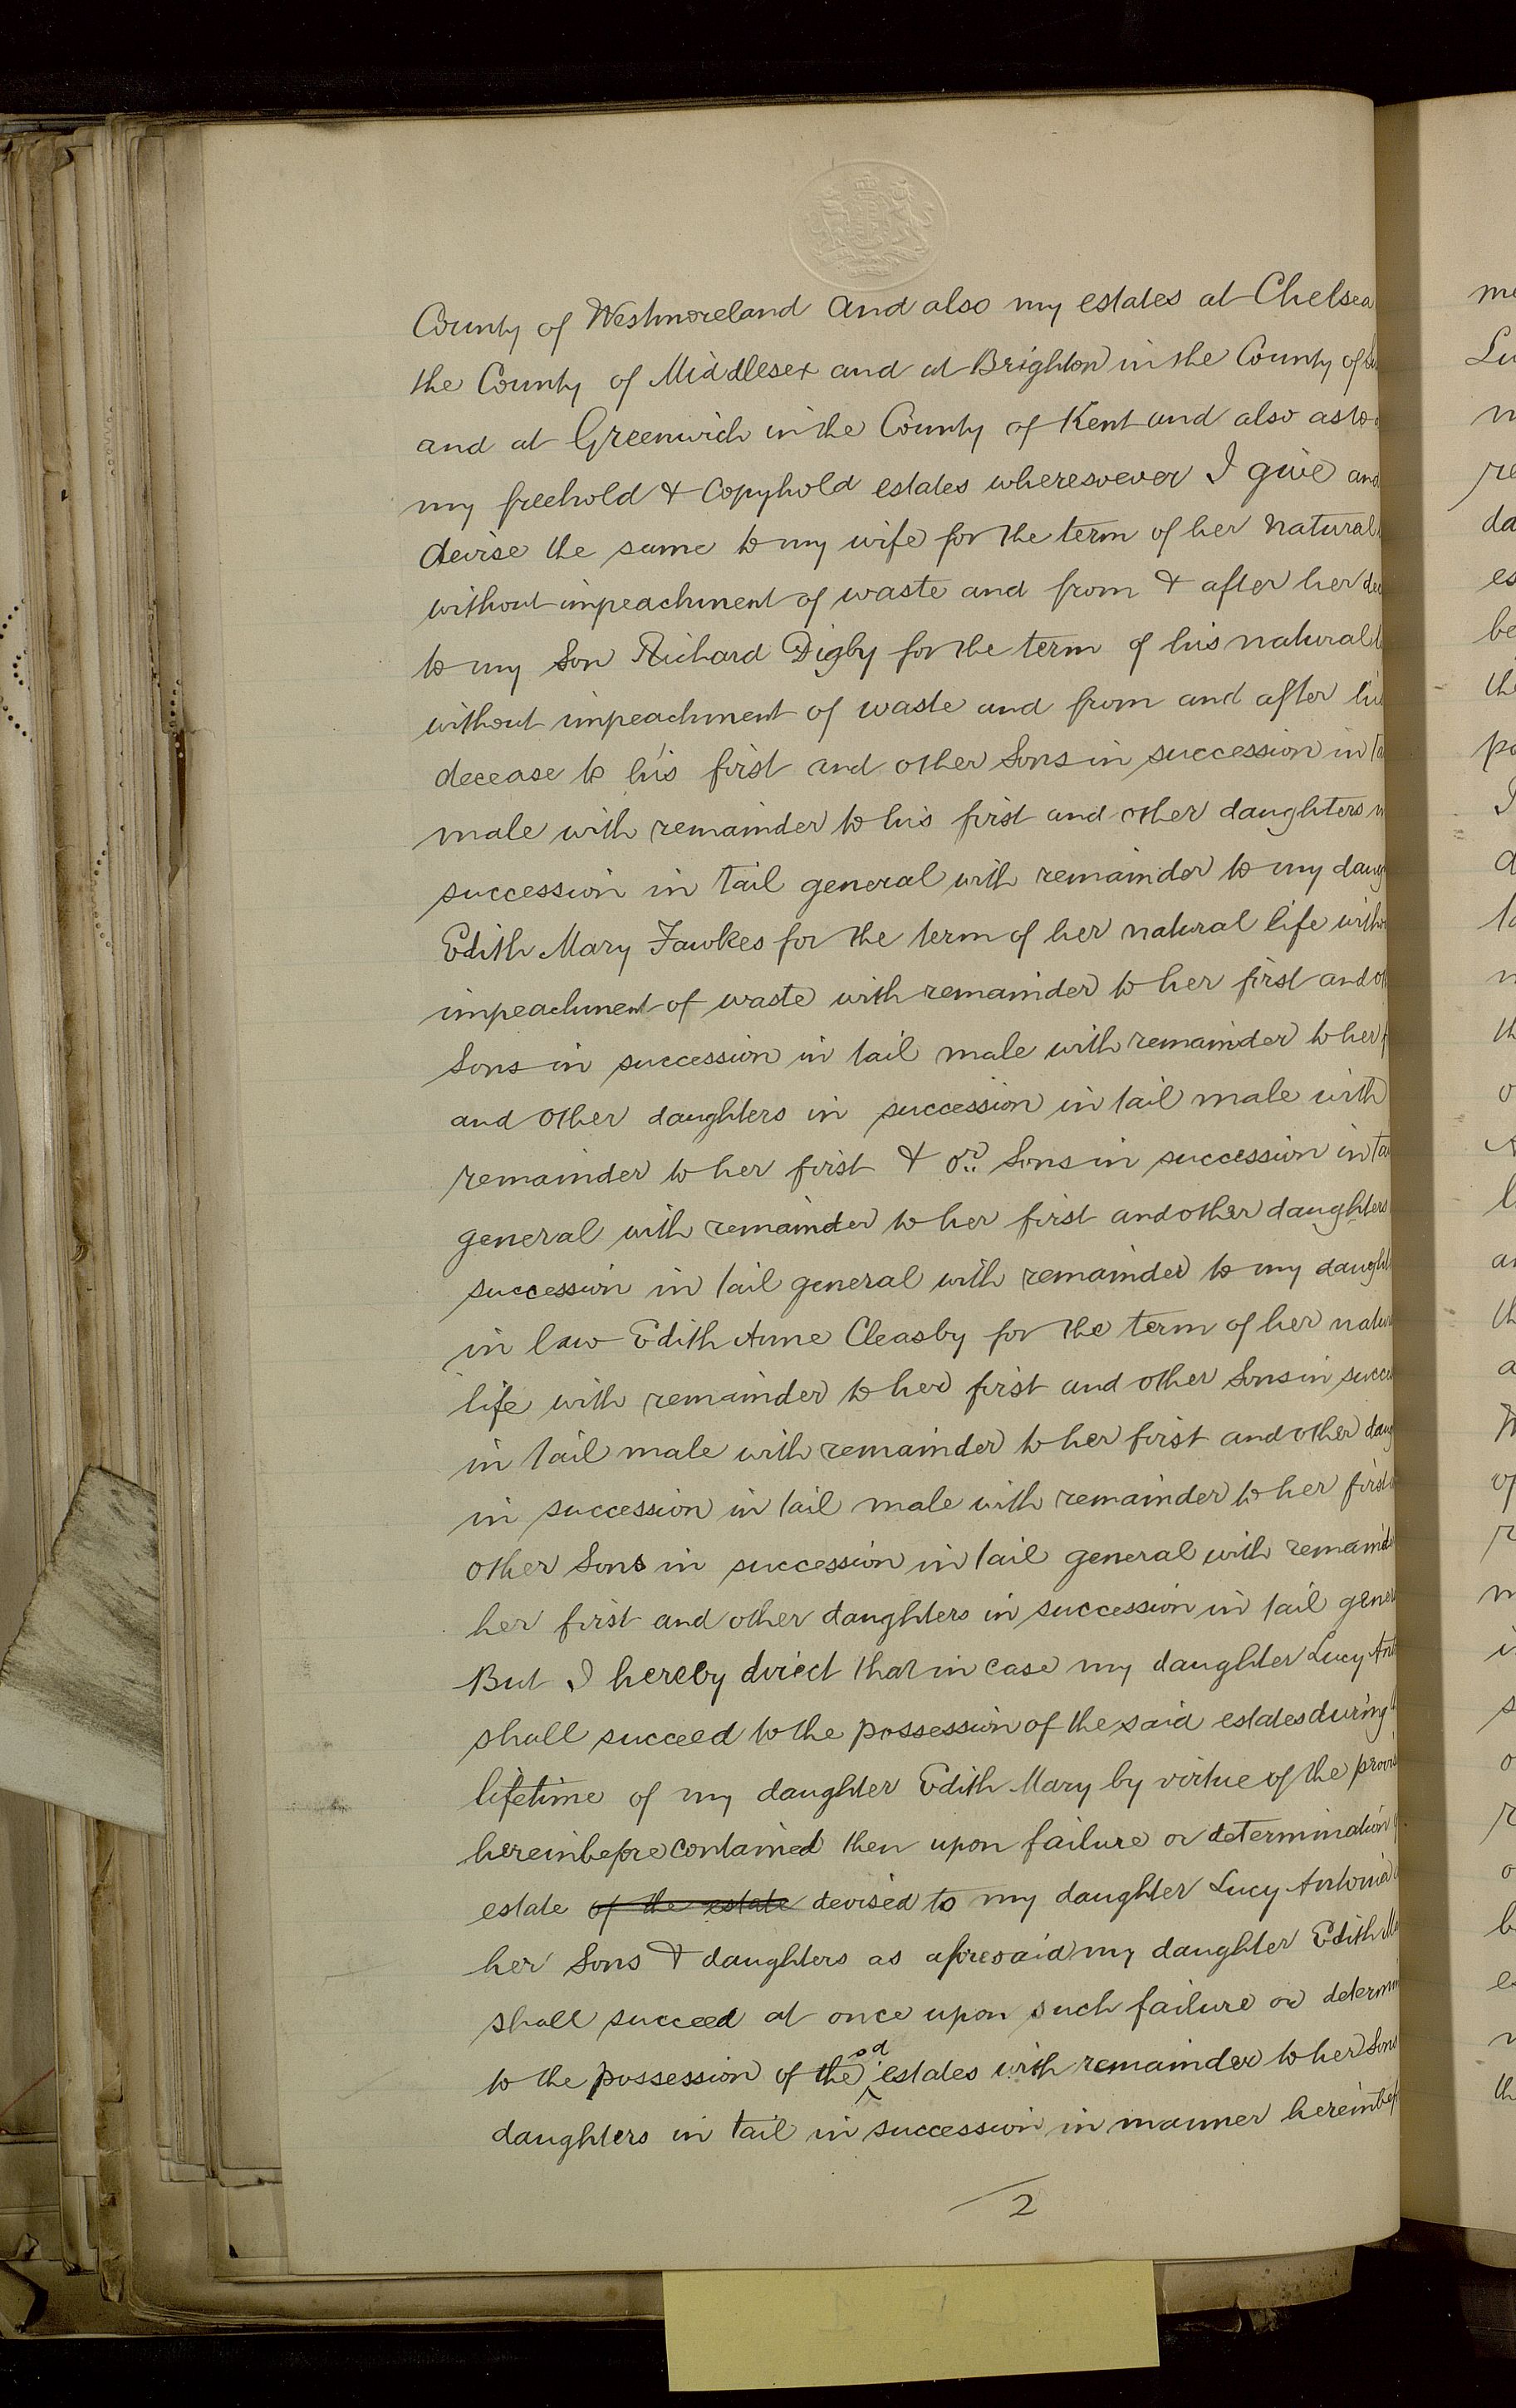 County of Westmoreland and also my estates at Chelsea
the County of Middlesex and at Brighton in the County of
and at Greenwich in the County of Kent and also as to
my freehold & Copyhold estates wheresoever I give and
devise the same to my wife for the term of her natural
without impeachment of waste and from & after her dec
to my Son Richard Digby for the term of his natural
without impeachment of waste and from and after his
decease to his first and other Sons in succession in ta
male with remainder to his first and other daughters in
succession in tail general with remainder to my daug
Edith Mary Fawkes for the term of her natural life witho
impeachment of waste with remainder to her first and ot
Sons in succession in tail male with remainder to her f
and other daughters in succession in tail male with
remainder to her first & or. Sons in succession in ta
general with remainder to her first and other daughters
succession in tail general with remainder to my daught
in law Edith Anne Cleasby for the term of her natur
life with remainder to her first and other Sons in succe
in tail male with remainder to her first and other daug
in succession in tail male with remainder to her first
other Sons in succession in tail general with remaind
her first and other daughters in succession in tail gener
But I hereby direct that in case my daughter Lucy Ant
shall succeed to the possession of the said estates during
lifetime of my daughter Edith Mary by virtue of the provis
hereinbefore contained then upon failure or determination
estate of the estate devised to my daughter Lucy Antonia
her Sons & daughters as aforesaid my daughter Edith Ma
shall succeed at once upon such failure or determi
to the possession of the sd estates with remainder to her Sons
daughters in tail in succession in manner hereinbef
2
me
Lu
re
da
es
be
the
po
I